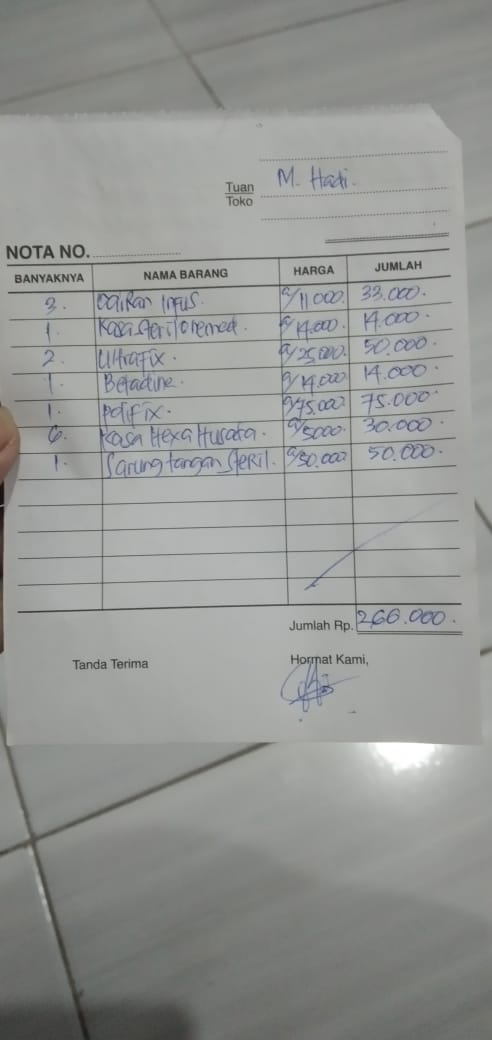 Tuan M. Hadi.
Toko
NOTA NO.
BANYAKNYA NAMA BARANG HARGA JUMLAH
3. Cairan Infus. @/11000. 33.000.
1. Kasa Steril Onemed. @/14.000. 14.000.
2. Ultrafix. @/25.000. 50.000.
1. Betadine. @/14.000 14.000.
1. Polifix. @/75.000 75.000.
6. Kasa Hexa Husada. @/5000. 30.000.
1. Sarung tangan Steril. @/50.000 50.000.
Jumlah Rp. 266.000.
Tanda Terima Hormat Kami,